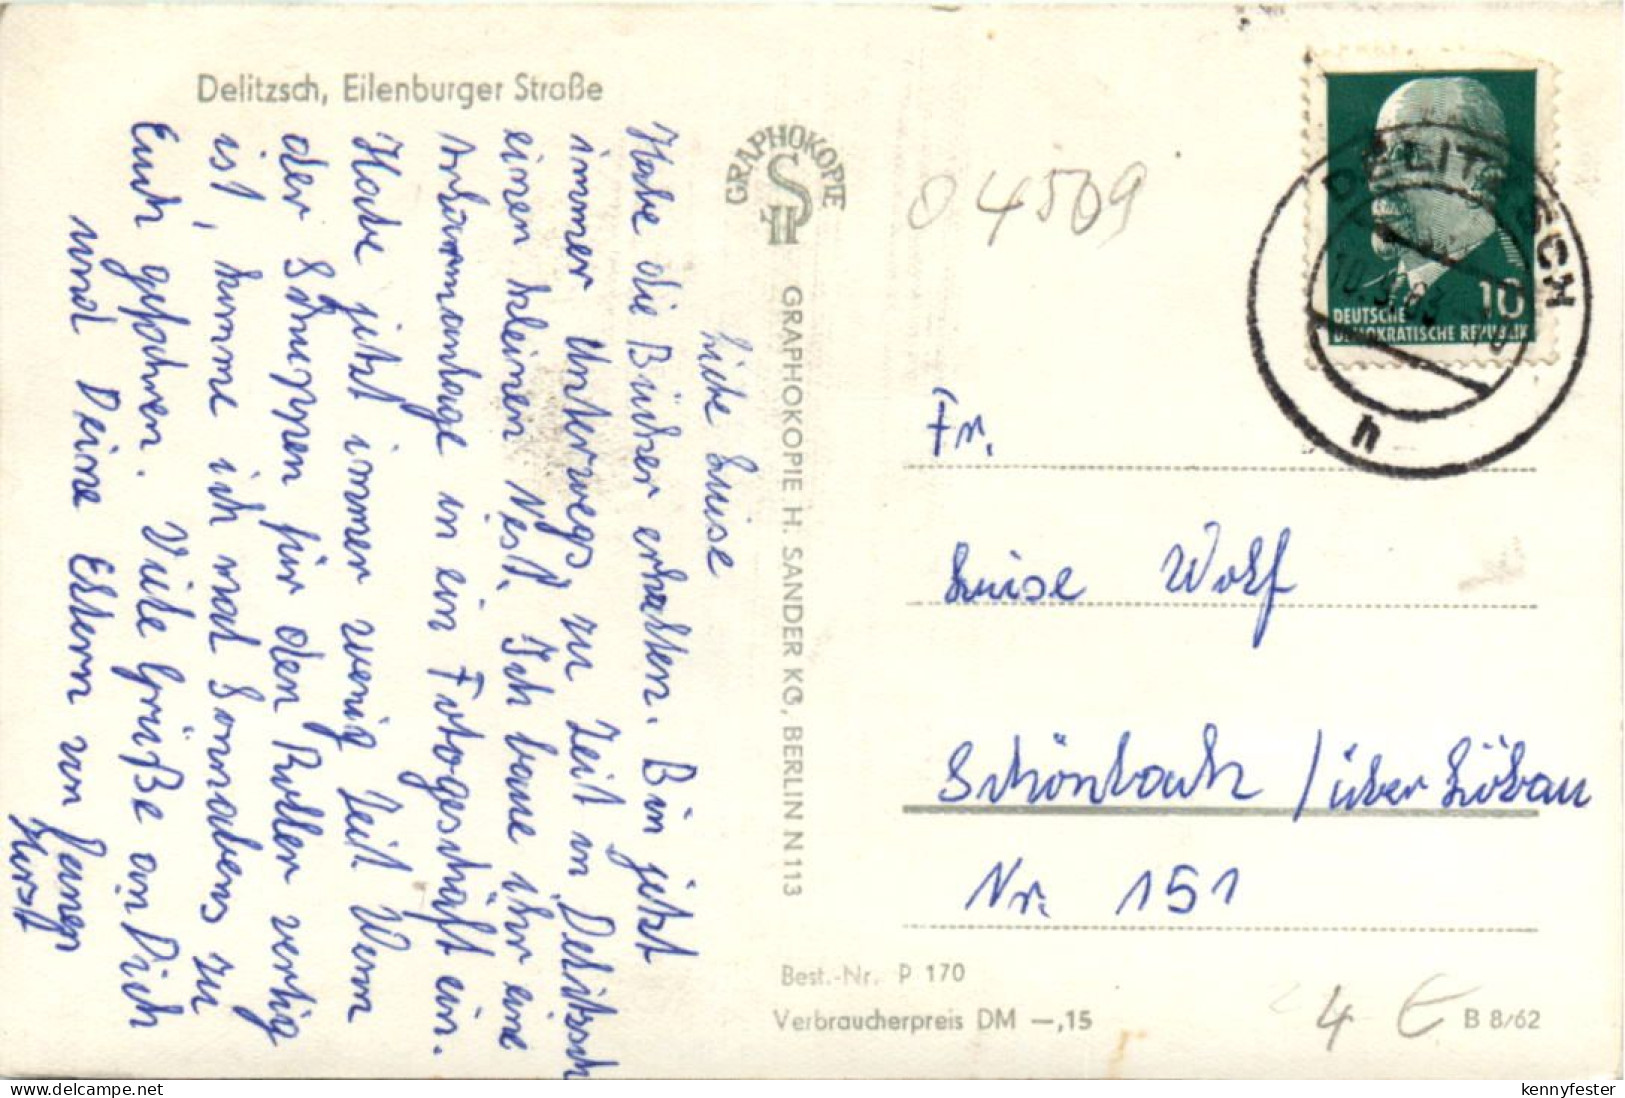 Delitzsch, Eilenburger Straße
Liebe Luise
Habe die Bücher erhalten. Bin jetzt
immer Unterwegs, zu Zeit in Delitzsch
einen kleinen Nest. Ich baue ihr eine
in ein Fotogeschäft ein.
Habe jetzt immer wenig Zeit Wenn
der Schuppen für den Roller vertig
ist, komme ich mal Sonnabens zu
Euch gefahren. Viele Grüße an Dich
und Deine Eltern von
Horst
GRAPHOKOPIE
H S
GRAPHOKOPIE H. SANDER KG, BERLIN N 113
04509
DEUTSCHE
DEMOKRATISCHE REPUBLIK
10
DELITZSCH
10.9.63
h
Fr.
Luise Wolf
Schönbach / über Löbau
Nr. 151
Best.-Nr. P 170
Verbraucherpreis DM —,15
4 €
B 8/62
kennyfester